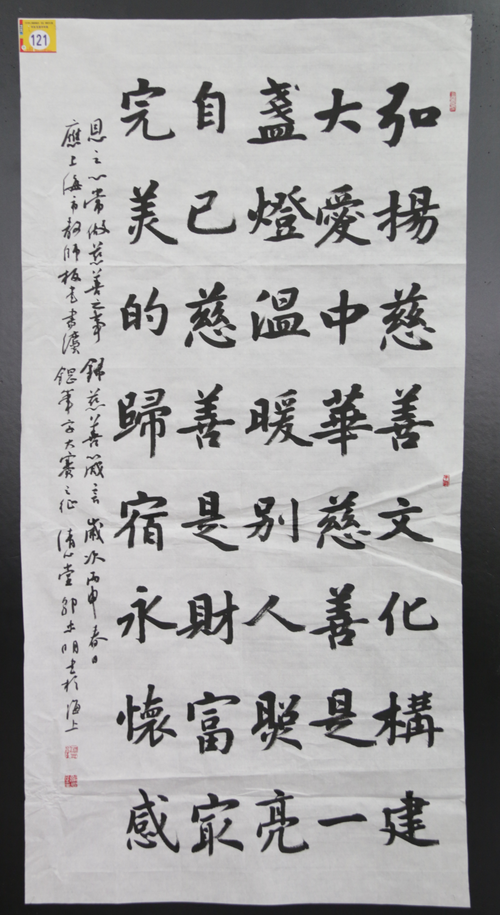 121
弘揚慈善文化構建
大愛中華慈善是一
盞燈溫暖別人照亮
自己慈善是財富冣
完美的歸宿永懷感
恩之心常做慈善之事 錄慈善箴言 歲次丙申春日
應上海市教師板書 大賽之征 書於海上